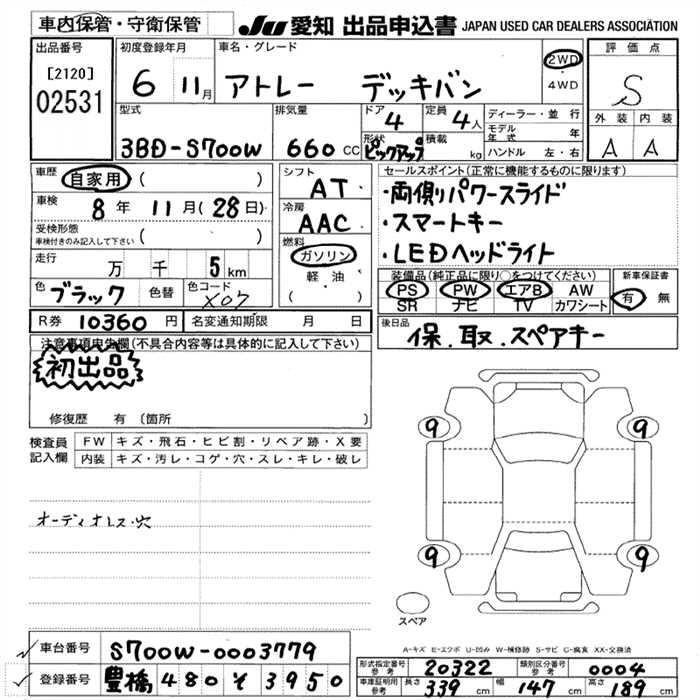 車内保管・守衛保管
JU 愛知 出品申込書 JAPAN USED CAR DEALERS ASSOCIATION
出品番号
[2120]
02531
初度登録年月
6 11月
車名・グレード
アトレー デッキバン
2WD
・
4WD
評価点
S
外装 内装
A A
型式
3BD-S700W
排気量
660 CC
ドア
4
定員
4人
形状
ピックアップ
積載
kg
ディーラー・並行
モデル年式 年
ハンドル 左・右
車歴
自家用 ( )
車検
8年 11月(28日)
受検形態
車検付きのみ記入して下さい ( )
走行
万 千 5km
色
ブラック
色替
色コード
X07
シフト
AT
冷房
AAC
燃料
ガソリン
軽・油
( )
セールスポイント(正常に機能するものに限ります)
・両側パワースライド
・スマートキー
・LEDヘッドライト
装備品(純正品に限り○をつけてください)
PS PW エアB AW
SR ナビ TV カワシート
新車保証書
有 無
R券 10360円
名変通知期限 月 日
後日品
保.取.スペアキー
注意事項申告欄(不具合内容等は具体的に記入して下さい)
初出品
修復歴 有 〔箇所 〕
検査員記入欄
FW キズ・飛石・ヒビ割・リペア跡・X要
内装 キズ・汚レ・コゲ・穴・スレ・キレ・破レ
オーディオレス・穴
9 9
9 9
スペア
A-キズ E-エクボ U-凹み W-補修跡 S-サビ C-腐食 XX-交換済
車台番号 S700W-0003779
登録番号 豊橋 480 そ 3950
形式指定番号 参考 20322
類別区分番号 参考 0004
車庫証明用 参考 長さ 339cm 幅 147cm 高さ 189cm